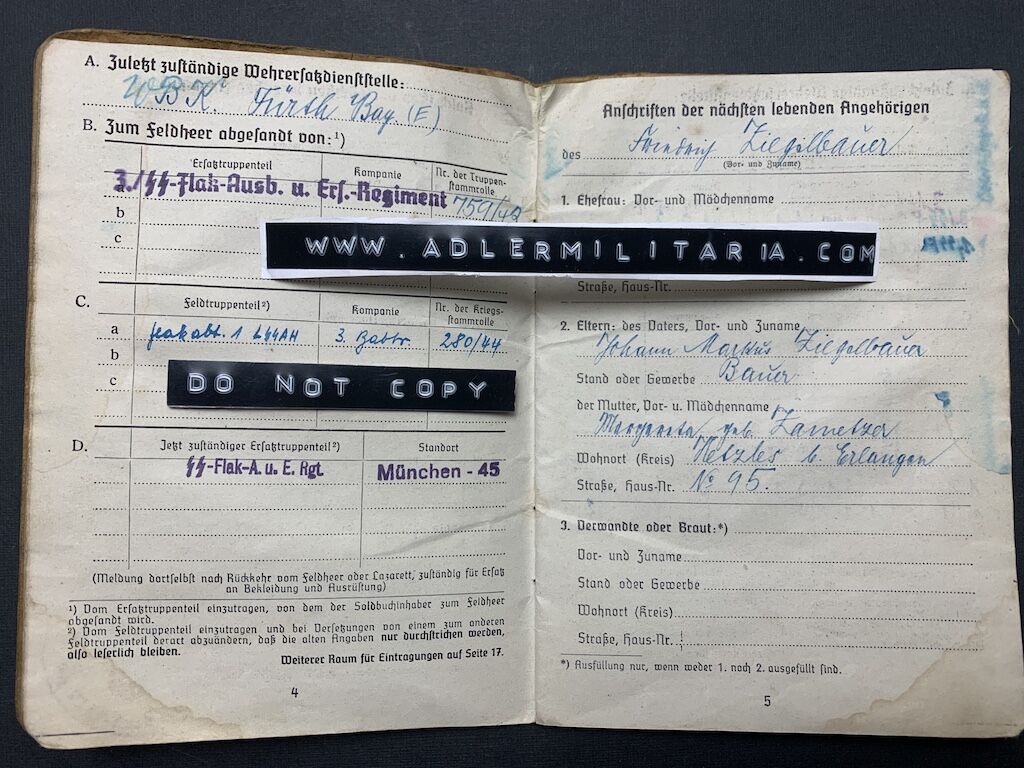 A. Zuletzt zuständige Wehrersatzdienststelle:
WBK. Fürth Bay. (E)
B. Zum Feldheer abgesandt von: ¹)
Ersatztruppenteil Kompanie Nr. der Truppen-
stammrolle
3./SS-Flak-Ausb. u. Ers.-Regiment 759/42
b
c
C. Feldtruppenteil²) Kompanie Nr. der Kriegs-
stammrolle
a 1 LSSAH 3. 280/44
b
c
DO NOT COPY
D. Jetzt zuständiger Ersatztruppenteil²) Standort
SS-Flak-A. u. E. Rgt. München - 45
(Meldung dortselbst nach Rückkehr vom Feldheer oder Lazarett, zuständig für Ersatz
an Bekleidung und Ausrüstung)
¹) Vom Ersatztruppenteil einzutragen, von dem der Soldbuchinhaber zum Feldheer
abgesandt wird.
²) Vom Feldtruppenteil einzutragen und bei Versetzungen von einem zum anderen
Feldtruppenteil derart abzuändern, daß die alten Angaben nur durchstrichen werden,
also leserlich bleiben.
Weiterer Raum für Eintragungen auf Seite 17.
4
Anschriften der nächsten lebenden Angehörigen
des Friedrich Ziegelbauer
(Vor- und Zuname)
1. Ehefrau: Vor- und Mädchenname
WWW.ADLERMILITARIA.COM
Straße, Haus-Nr.
2. Eltern: des Vaters, Vor- und Zuname
Johann Markus Ziegelbauer
Stand oder Gewerbe Bauer
der Mutter, Vor- u. Mädchenname
Margareta geb. Zametzer
Wohnort (Kreis) Hetzles b. Erlangen
Straße, Haus-Nr. No 95.
3. Verwandte oder Braut:*)
Vor- und Zuname
Stand oder Gewerbe
Wohnort (Kreis)
Straße, Haus-Nr.
*) Ausfüllung nur, wenn weder 1. noch 2. ausgefüllt sind.
5